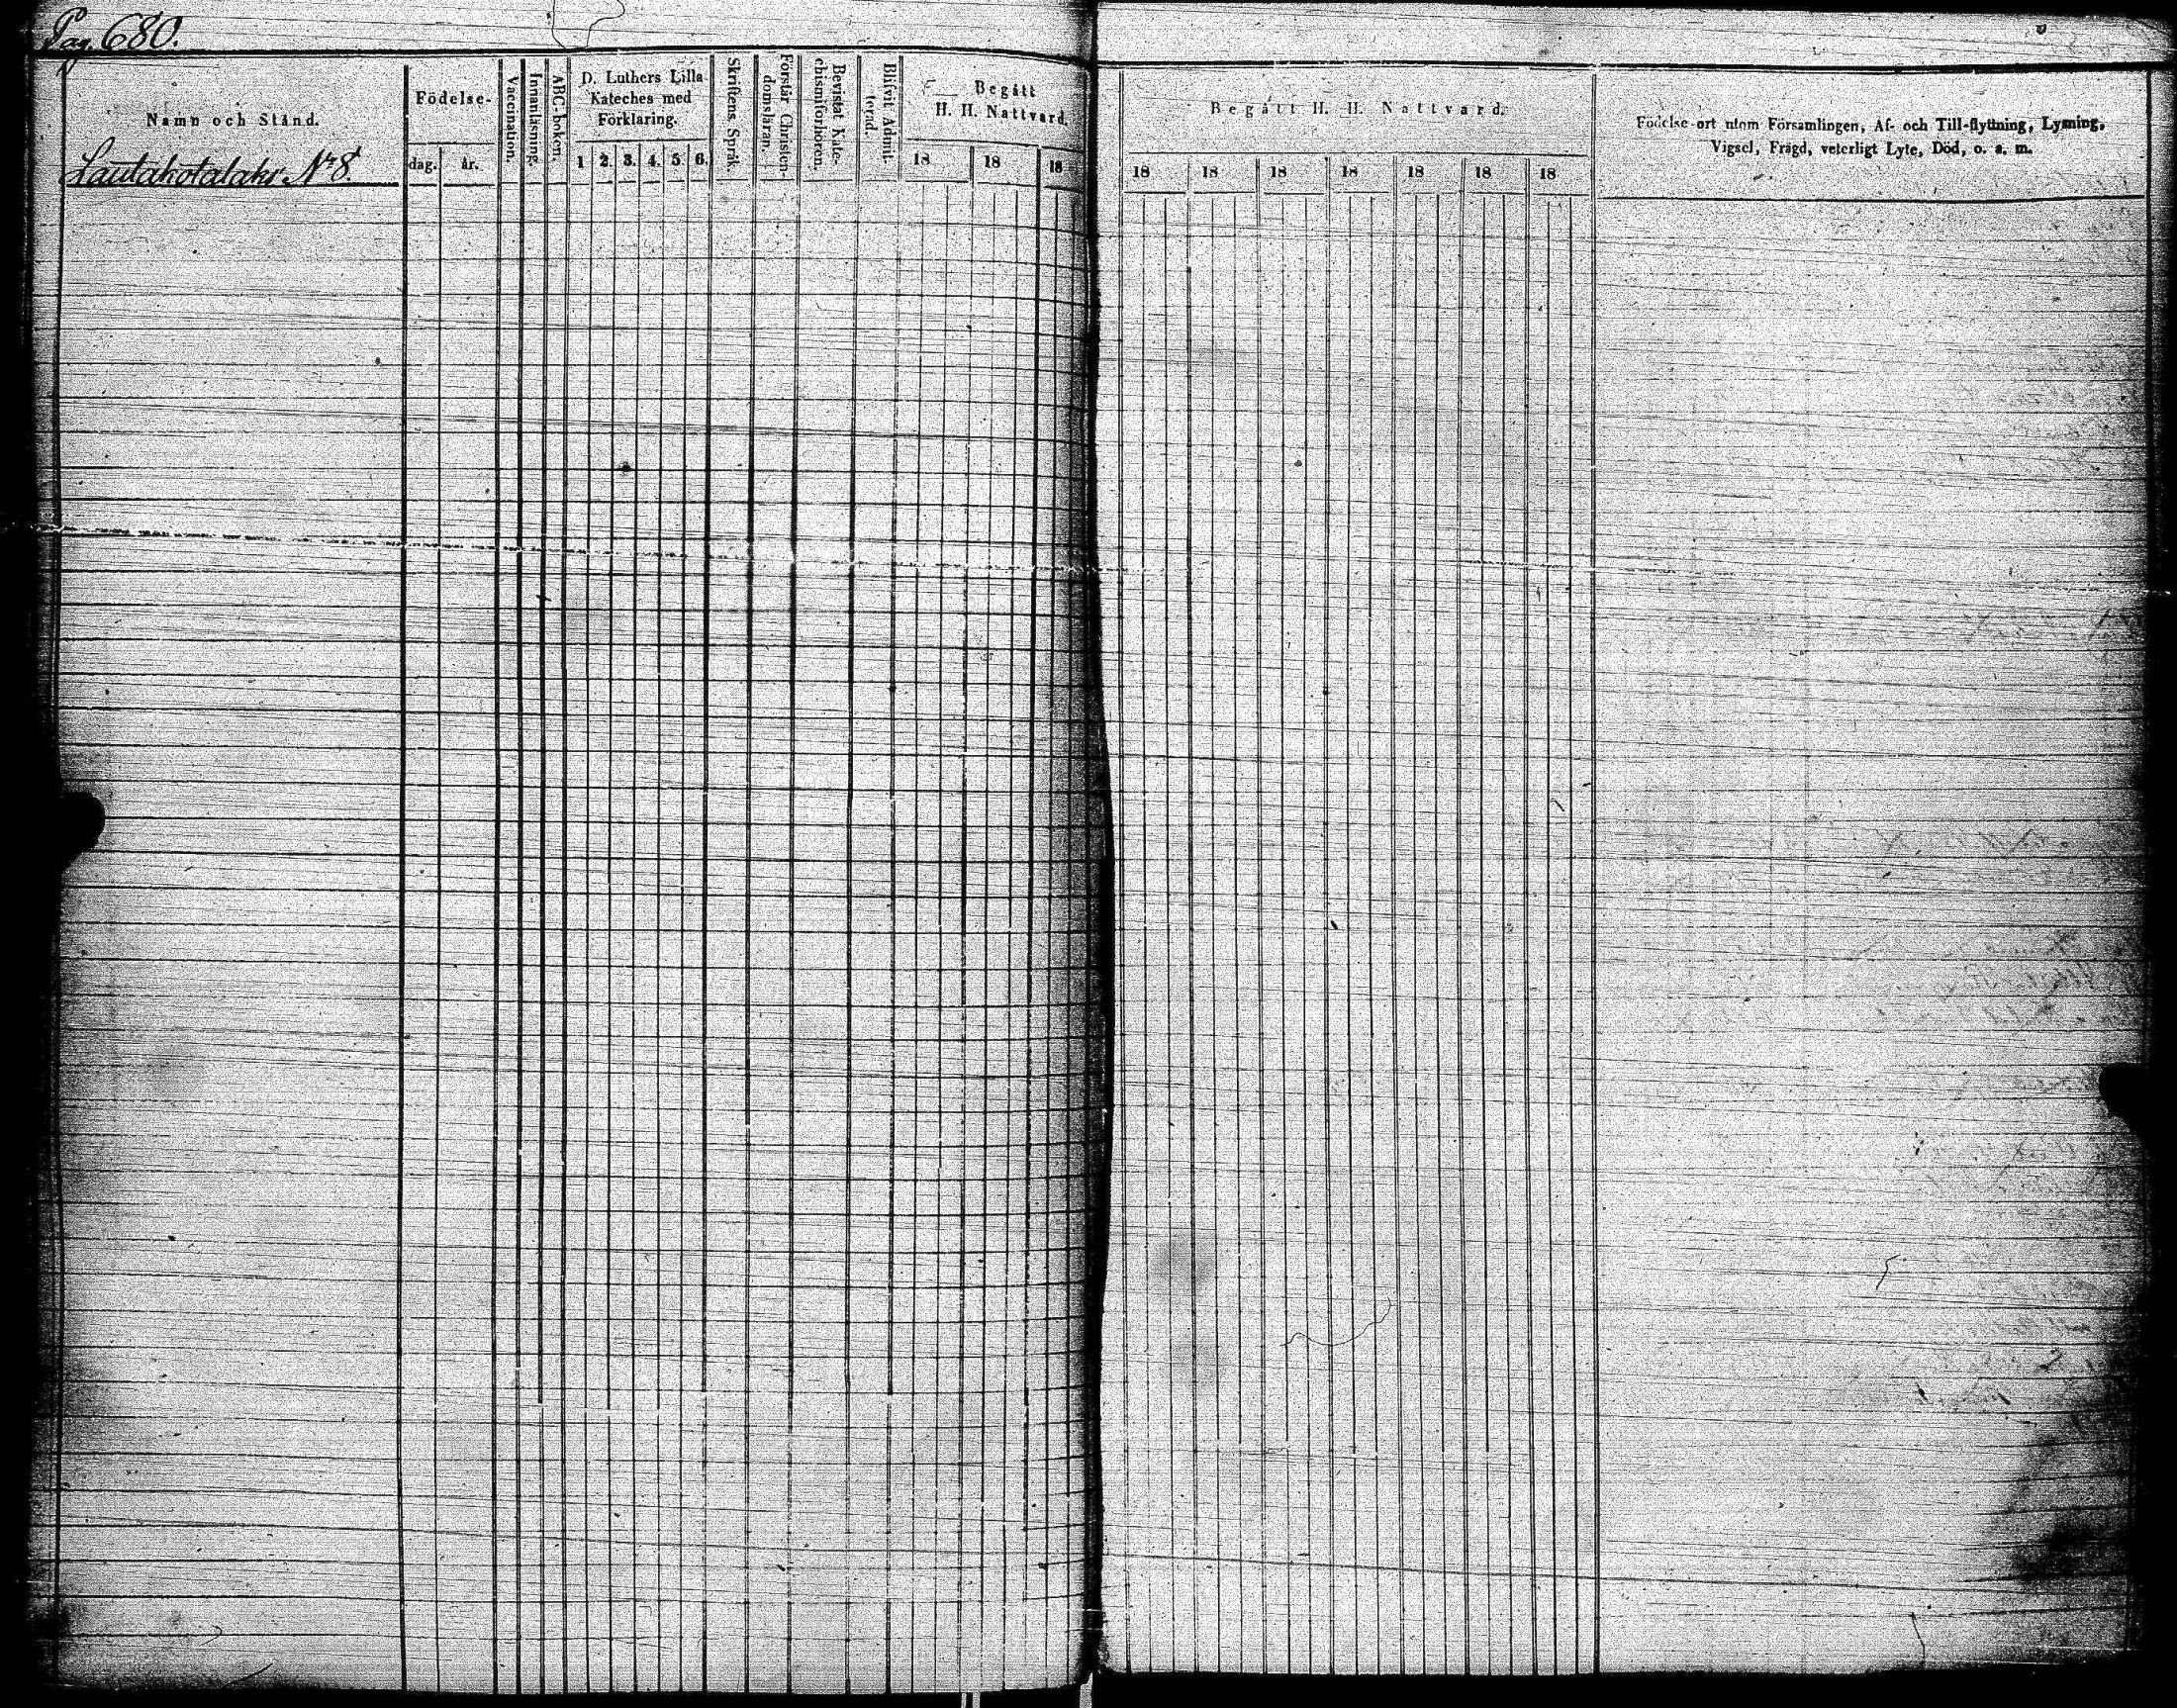 Pag. 680.
Namn och Stånd.
Lautakotalahr Nr 8.
Födelse-
dag.
år.
Vaccination.
Innanläsning.
ABC-boken.
D. Luthers Lilla
Kateches med
Förklaring.
1 2. 3. 4. 5. 6.
Skriftens Språk.
Förstår Christen-
domsläran.
Bevistat Kate-
chismiförhören.
Blifvit Admit-
terad.
Begått
H. H. Nattvard.
18 18 18
Begått H. H. Nattvard.
18 18 18 18 18 18 18
Födelse-ort utom Församlingen, Af- och Till-flyttning, Lysning,
Vigsel, Frägd, veterligt Lyte, Död, o. s. m.